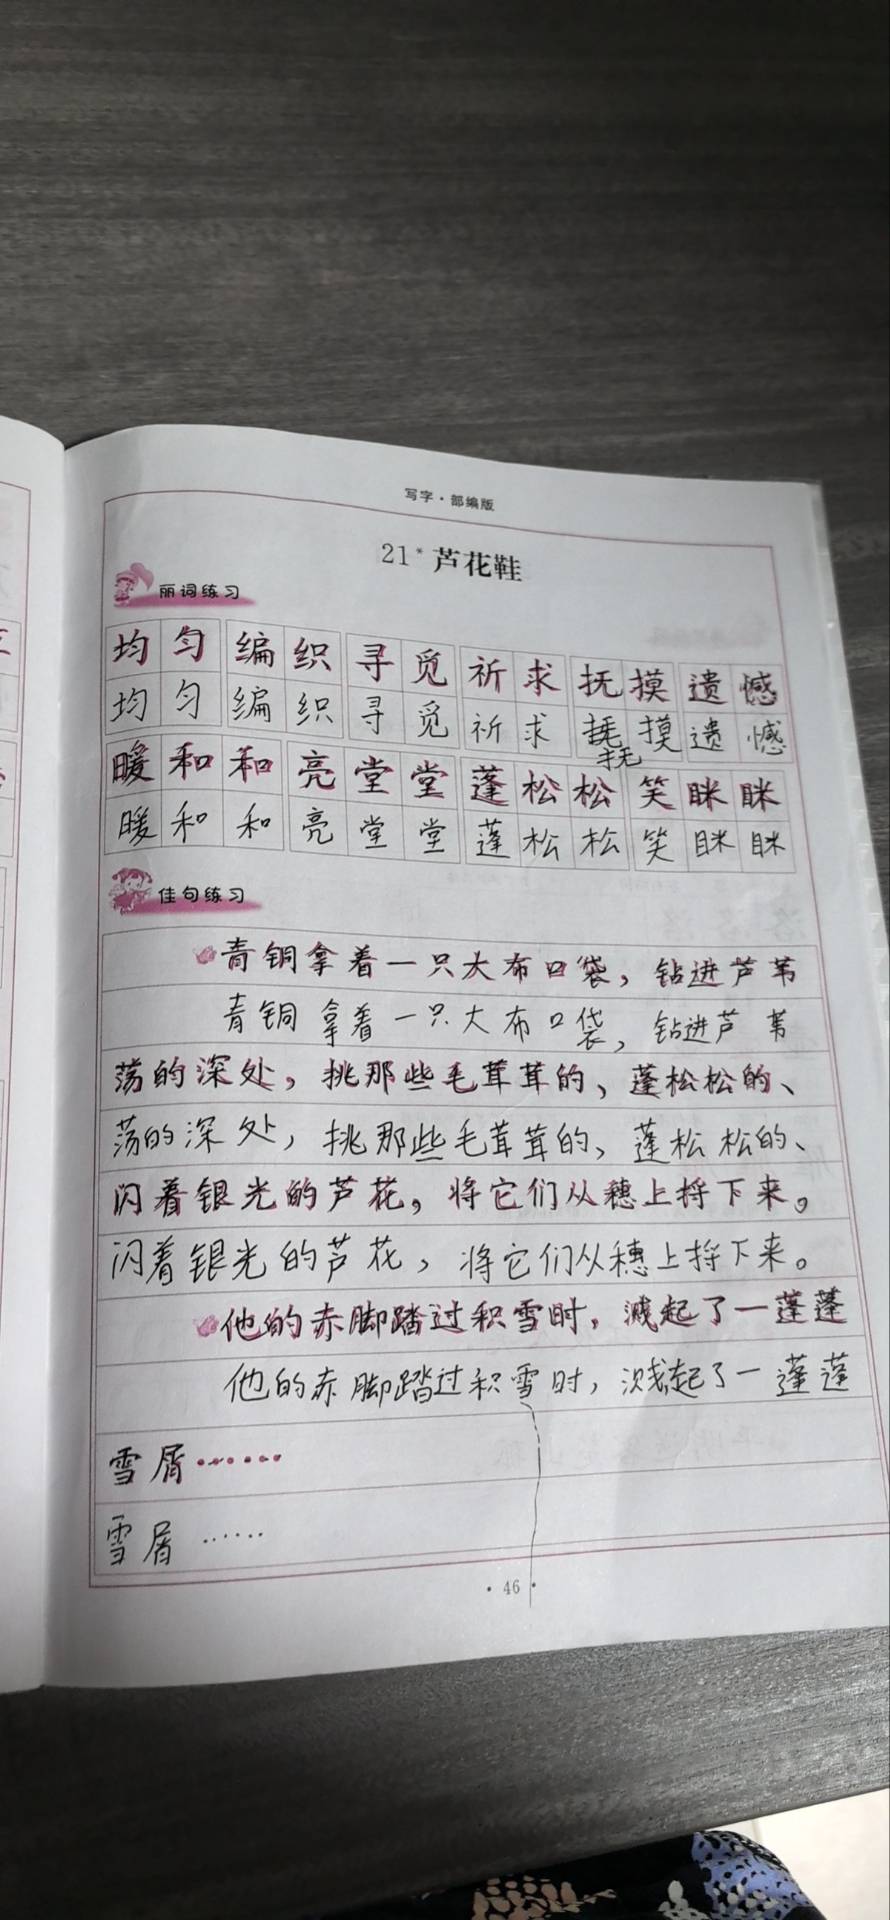 写字·部编版
21* 芦花鞋
丽词练习
均匀 编织 寻觅 祈求 抚摸 遗憾
均匀 编织 寻觅 祈求 抚摸 遗憾
暖和和 亮堂堂 蓬松松 笑眯眯
暖和和 亮堂堂 蓬松松 笑眯眯
佳句练习
青铜拿着一只大布口袋，钻进芦苇
青铜拿着一只大布口袋，钻进芦苇
荡的深处，挑那些毛茸茸的、蓬松松的、
荡的深处，挑那些毛茸茸的、蓬松松的、
闪着银光的芦花，将它们从穗上捋下来。
闪着银光的芦花，将它们从穗上捋下来。
他的赤脚踏过积雪时，溅起了一蓬蓬
他的赤脚踏过积雪时，溅起了一蓬蓬
雪屑……
雪屑……
·46·